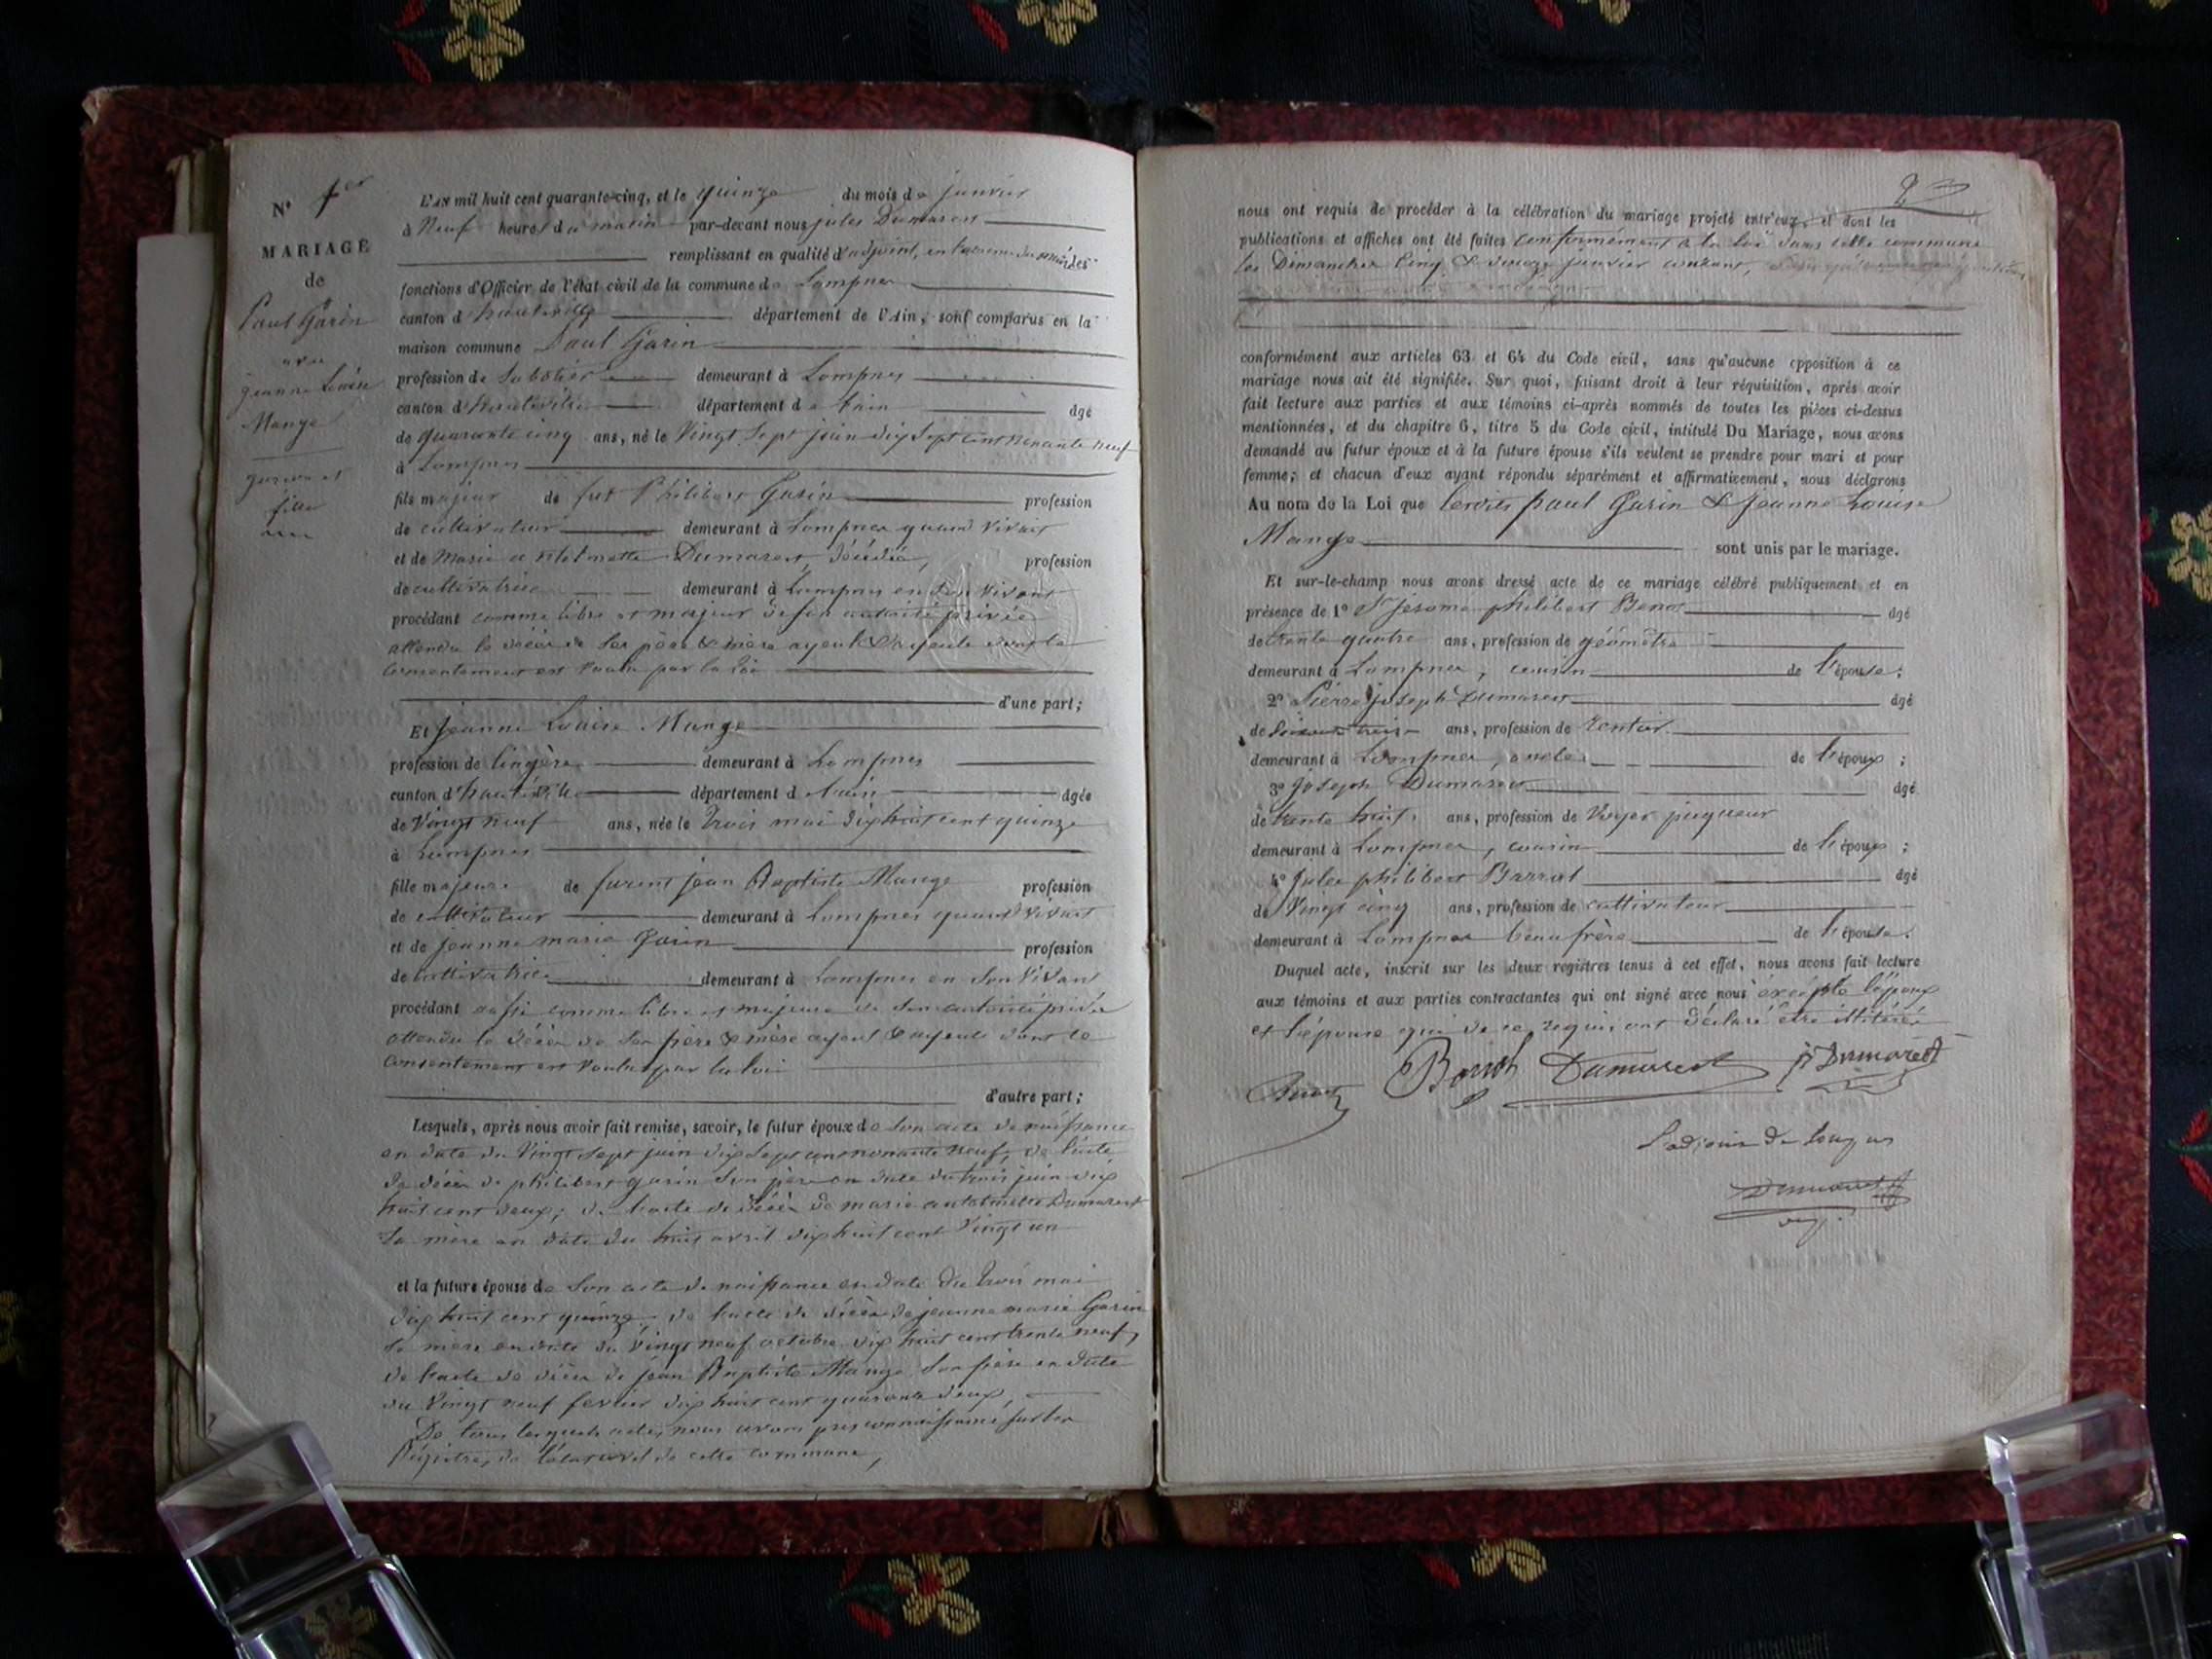 N° 1er
MARIAGE
de
Paul Garin
avec
jeanne Louise
Mange
garçon et
fille
L'an mil huit cent quarante-cinq, et le quinze du mois de janvier
à Neuf heures du matin par-devant nous jules Dumarest
remplissant en qualité d'adjoint, en des
fonctions d'Officier de l'état civil de la commune de Lompnes
canton d'hauteville département de l'Ain, sont comparus en la
maison commune Paul Garin
profession de Sabotier demeurant à Lompnes
canton d'hauteville département de l'ain âgé
de quarante cinq ans, né le Vingt Sept juin dix Sept cent nonante neuf
à Lompnes
fils majeur de feu Philibert Garin profession
de cultivateur demeurant à Lompnes quand vivait
et de Marie Dumarest, décédée, profession
de cultivatrice demeurant à Lompnes en Son Vivant
procédant comme libre et majeur de son autorité privée
attendu le décès de Ses père & mère ayeul & ayeule dont le
consentement est voulu par la Loi
d'une part;
Et Jeanne Louise Mange
profession de lingère demeurant à Lompnes
canton d'hauteville département d l'ain âgée
de Vingt neuf ans, née le trois mai dix huit cent quinze
à Lompnes
fille majeure de furent jean Baptiste Mange profession
de cultivateur demeurant à Lompnes quand vivait
et de jeanne marie Garin profession
de cultivatrice demeurant à Lompnes en Son Vivant
procédant aussi comme libre et majeure de son autorité privée
attendu le décès de Ses père & mère ayeul & ayeule dont le
consentement est voulu par la loi
d'autre part;
Lesquels, après nous avoir fait remise, savoir, le futur époux de Son acte de naissance
en date du Vingt sept juin dix sept cent nonante neuf, de l'acte
de décès de philibert garin Son père en date du trois juin dix
huit cent deux; de l'acte de décès de marie Dumarest
Sa mère en date du huit avril dix huit cent vingt un
et la future épouse de Son acte de naissance en date du trois mai
dix huit cent quinze, de l'acte de décès de jeanne marie Garin
Sa mère en date du Vingt neuf octobre dix huit cent trente neuf,
de l'acte de décès de jean Baptiste Mange Son père en date
du Vingt neuf fevrier dix huit cent quarante deux,
De tous lesquels actes nous avons pris connaissance sur les
Régistres de l'état civil de cette commune,
2
nous ont requis de procéder à la célébration du mariage projeté entr'eux, et dont les
publications et affiches ont été faites conformément à la Loi dans cette commune
les Dimanches Cinq & douze janvier courant,
conformément aux articles 63 et 64 du Code civil, sans qu'aucune opposition à ce
mariage nous ait été signifiée. Sur quoi, faisant droit à leur réquisition, après avoir
fait lecture aux parties et aux témoins ci-après nommés de toutes les pièces ci-dessus
mentionnées, et du chapitre 6, titre 5 du Code civil, intitulé Du Mariage, nous avons
demandé au futur époux et à la future épouse s'ils veulent se prendre pour mari et pour
femme; et chacun d'eux ayant répondu séparément et affirmativement, nous déclarons
Au nom de la Loi que lesdits paul Garin & jeanne Louise
Mange sont unis par le mariage.
Et sur-le-champ nous avons dressé acte de ce mariage célébré publiquement et en
présence de 1° Sr jerome philibert âgé
de trente quatre ans, profession de géomètre
demeurant à Lompnes, cousin de l'épouse;
2° Pierre joseph Dumarest âgé
de ans, profession de Rentier
demeurant à Lompnes, oncle de l'époux;
3° Joseph Dumarest âgé
de trente huit ans, profession de Voyer piqueur
demeurant à Lompnes, cousin de l'époux;
4° Jules philibert Barral âgé
de Vingt cinq ans, profession de cultivateur
demeurant à Lompnes beaufrère de l'épouse.
Duquel acte, inscrit sur les deux registres tenus à cet effet, nous avons fait lecture
aux témoins et aux parties contractantes qui ont signé avec nous excepté l'époux
et l'épouse qui de ce requis ont déclaré être illitérés
Dumarest Dumarest
Dumarest